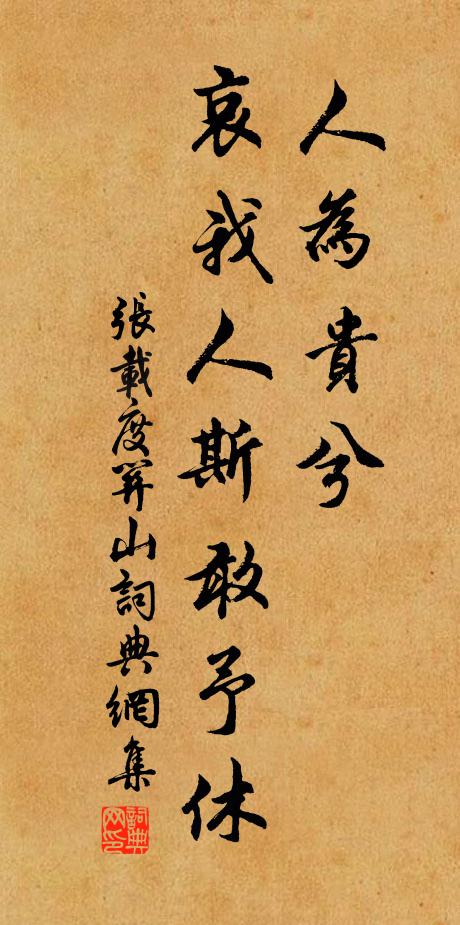 人為貴兮
哀我人斯敢予休
張載度關山詞典網集
詞典網印